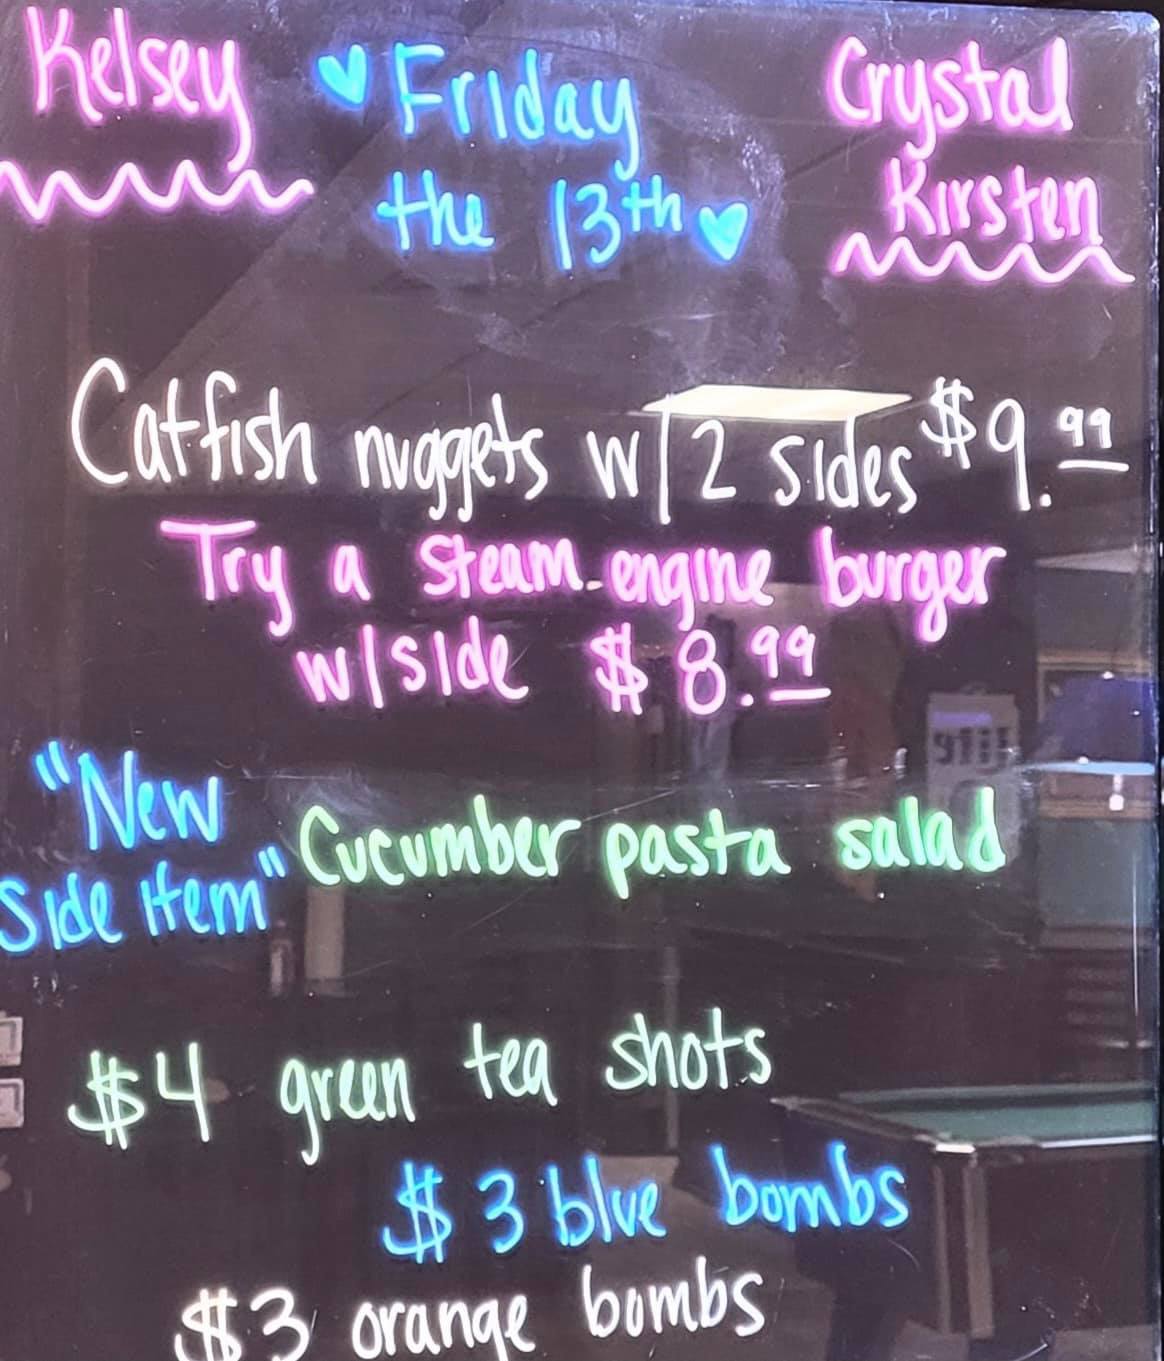 Kelsey
Friday
the 13th
Crystal
Kirsten
Catfish nuggets w/2 sides $9.99
Try a steam engine burger
w/side $8.99
"New
Side item"
Cucumber pasta salad
$4 green tea shots
$3 blue bombs
$3 orange bombs